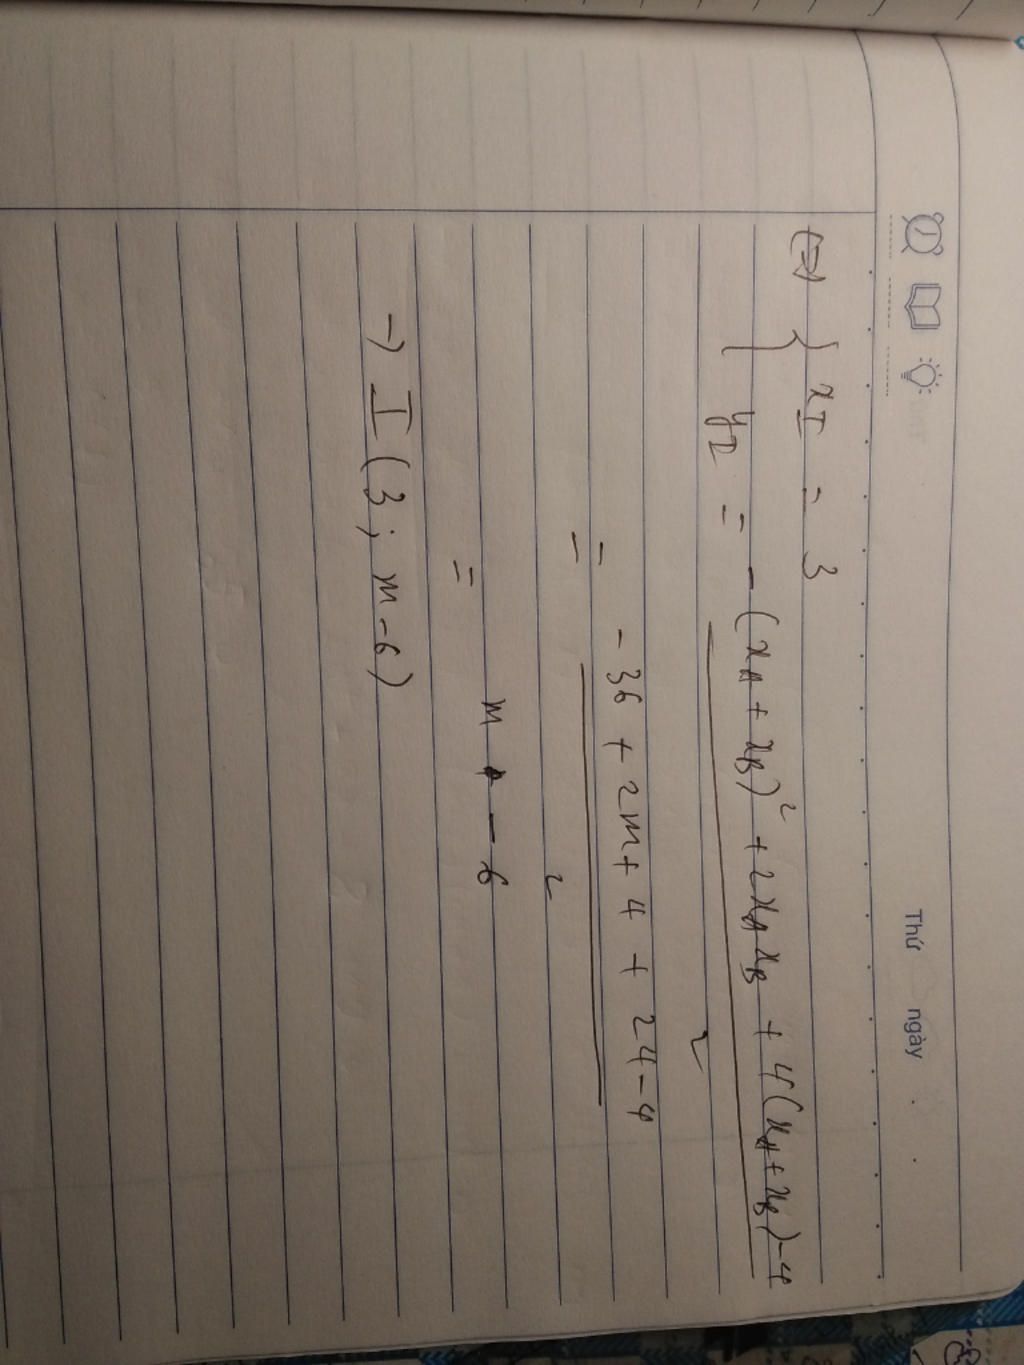 Thứ ngày
(=) { x_I = 3
y_I = -(x_A + x_B)² + 2x_A x_B + 4(x_A + x_B) - 4
2
= -36 + 2m + 4 + 24 - 4
2
= m - 6
→ I (3; m - 6)